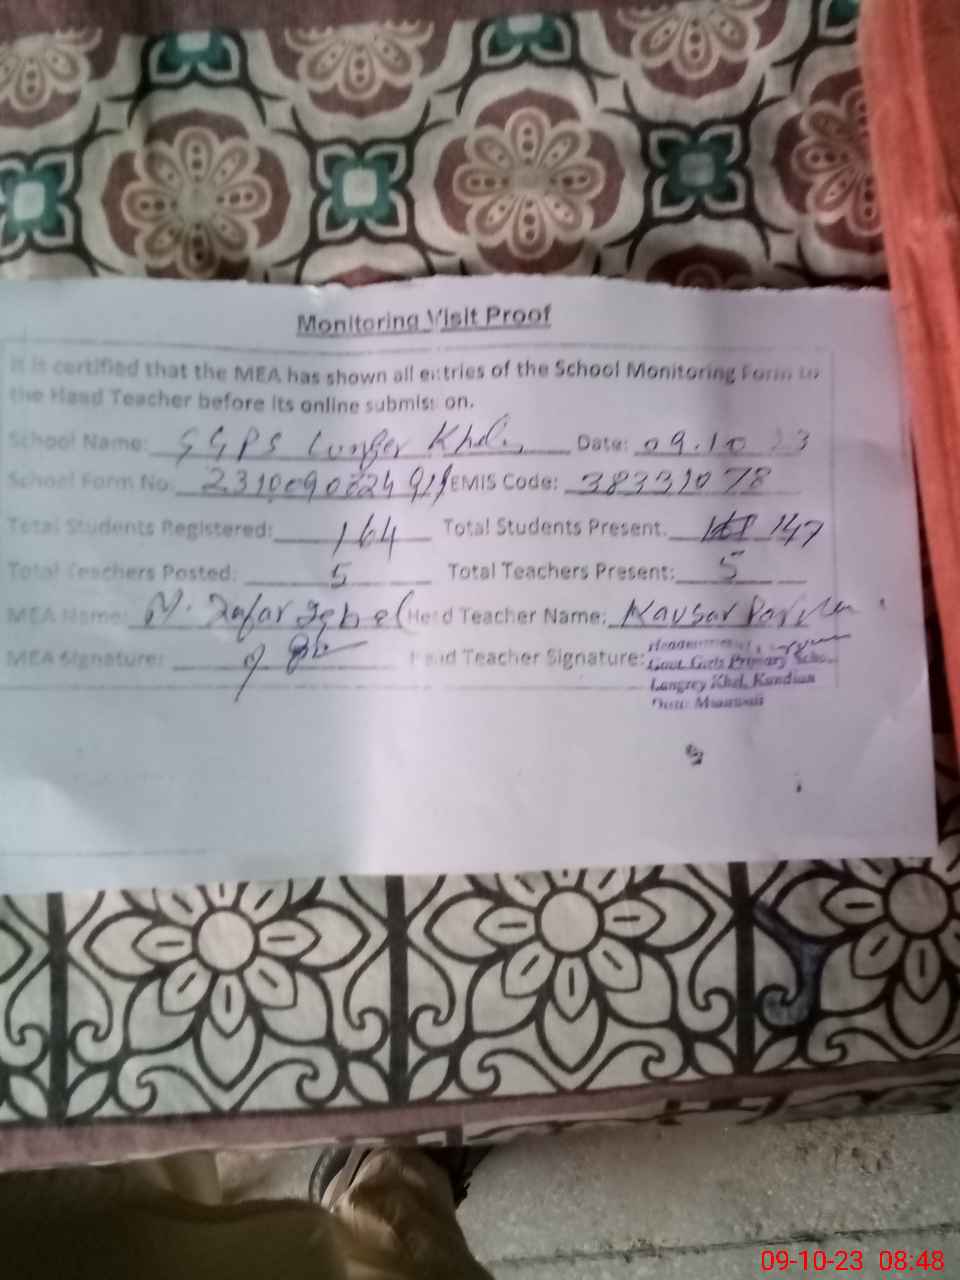 Monitoring Visit Proof
It is certified that the MEA has shown all entries of the School Monitoring Form to
the Head Teacher before its online submission.
School Name: GGPS Langer Khel Date: 09.10 23
School Form No: EMIS Code: 38331078
Total Students Registered: 164 Total Students Present. 147
Total Teachers Posted: 5 Total Teachers Present: 5
MEA Name: M. Zafar Iqbal Head Teacher Name: Kausar Parveen
MEA Signature: Head Teacher Signature:
Govt. Girls Primary School
Langrey Khel, Kundian
Distt: Mianwali
09-10-23 08:48